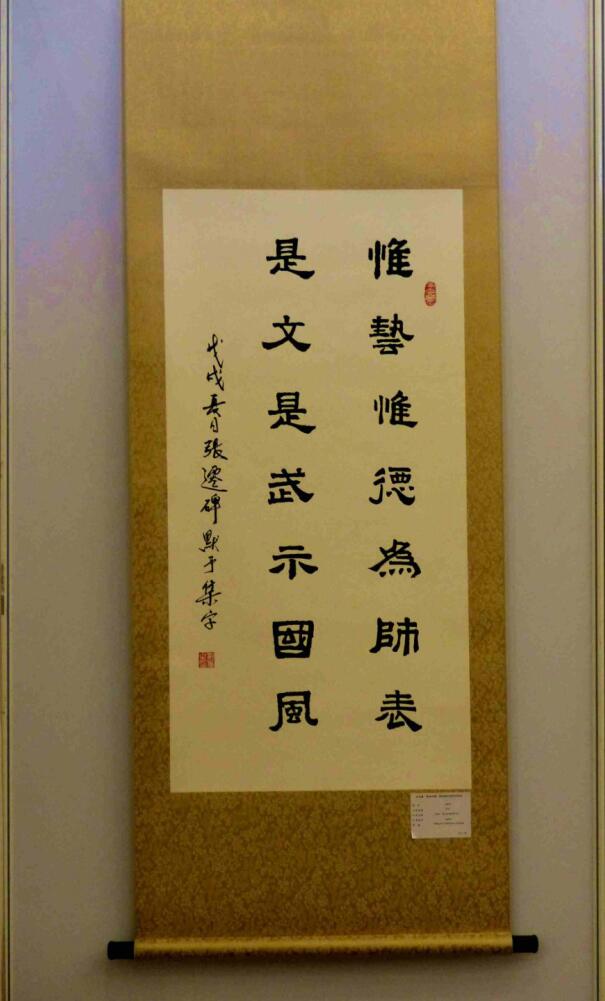 惟藝惟德為師表
是文是武示國風
戊戌春日張遷碑默于集字